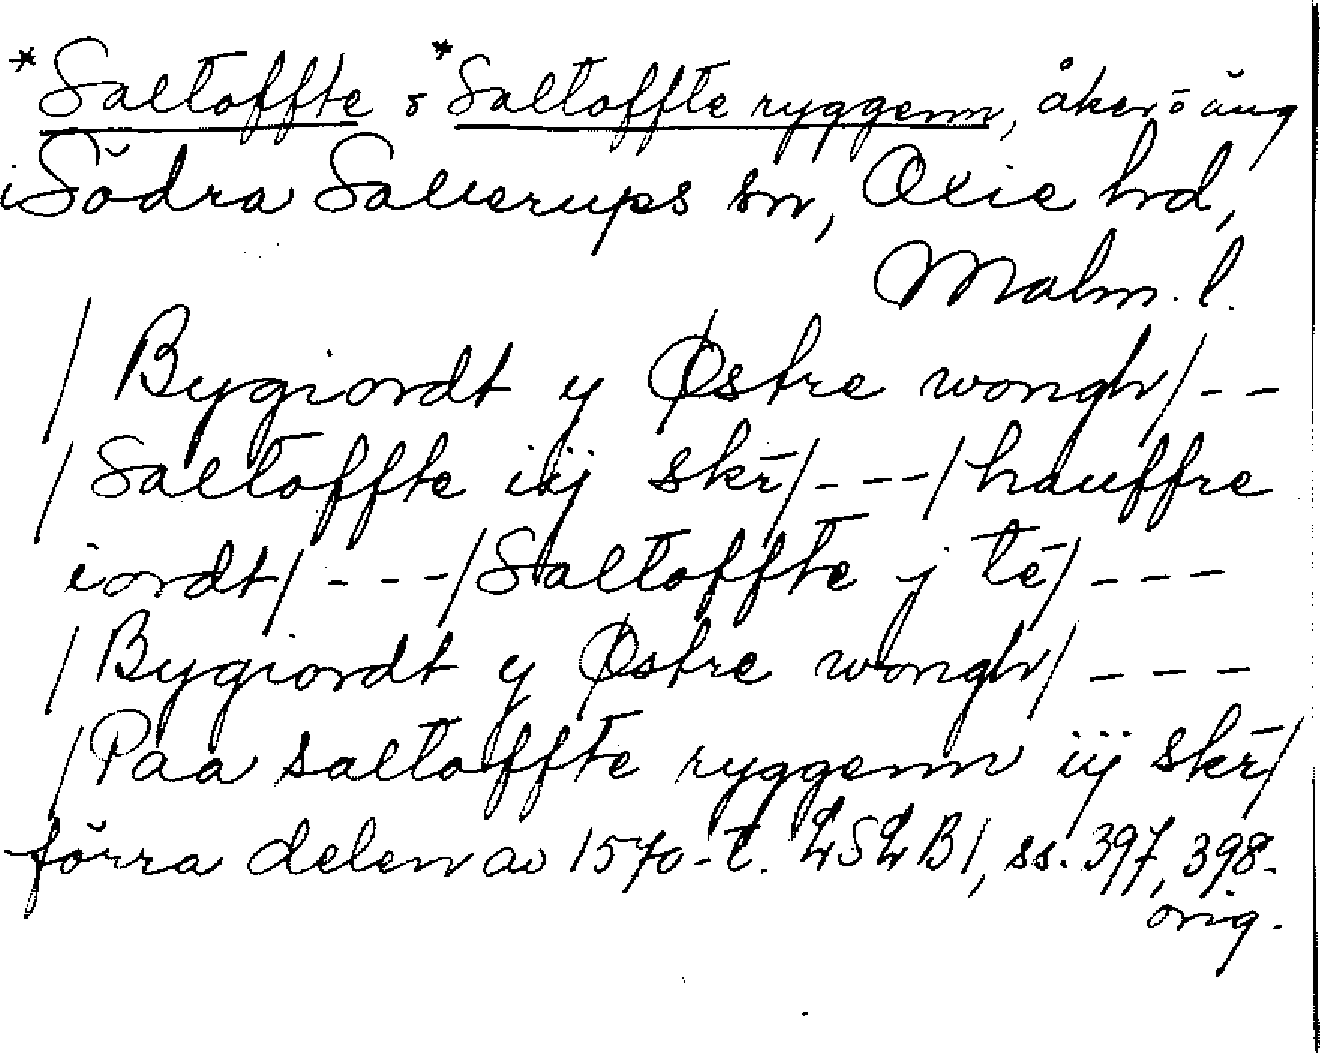 *Saltoffte o *Saltoffte ryggenn, åker o äng
i Södra Sallerups sn, Oxie hd,
Malm. l.
/ Bygiordt y Østre wongh/ - -
/ Saltoffte iij skr̄/ - - - / hauffre
iordt/ - - - / Saltoffte j tē/ - - -
/ Bygiordt y Østre wongh/ - - -
/ Paa saltoffte ryggenn iij skr̄/
förra delen av 1570-t. LSLB1, ss. 397, 398.
orig.